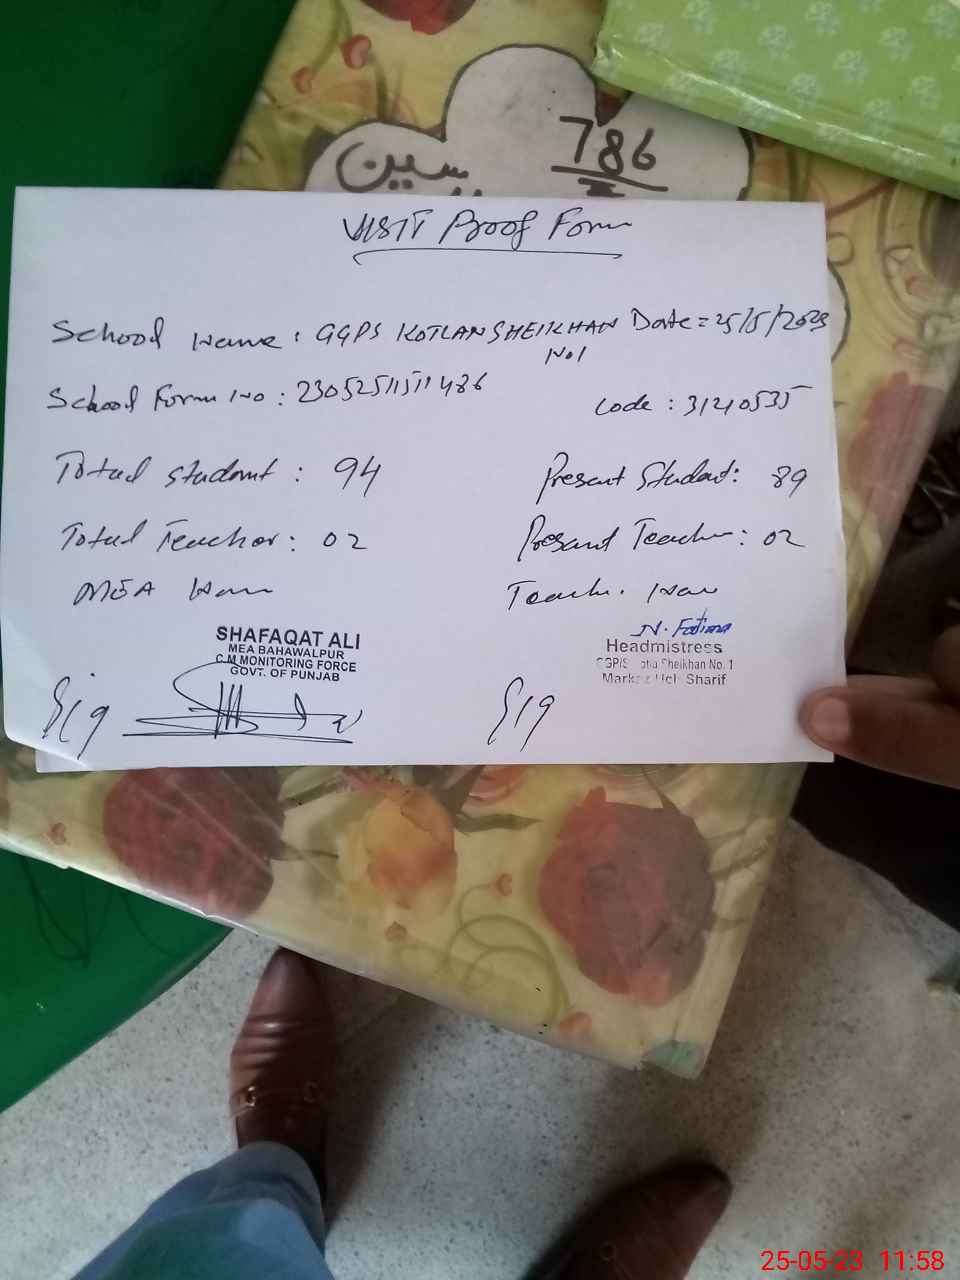 786
سین
VISIT Proof Form
School Name: GGPS KOTLAN SHEIKHAN Date = 25/5/2023
No1
School Form No: 23052511511486
Code: 31210535
Total student: 94
Present Student: 89
Total Teacher: 02
Present Teacher: 02
MEA Name
Teacher. Name
SHAFAQAT ALI
MEA BAHAWALPUR
C.M MONITORING FORCE
GOVT. OF PUNJAB
N. Fatima
Headmistress
Sheikhan No. 1
Markaz Uch Sharif
Sig
Sig
25-05-23 11:58